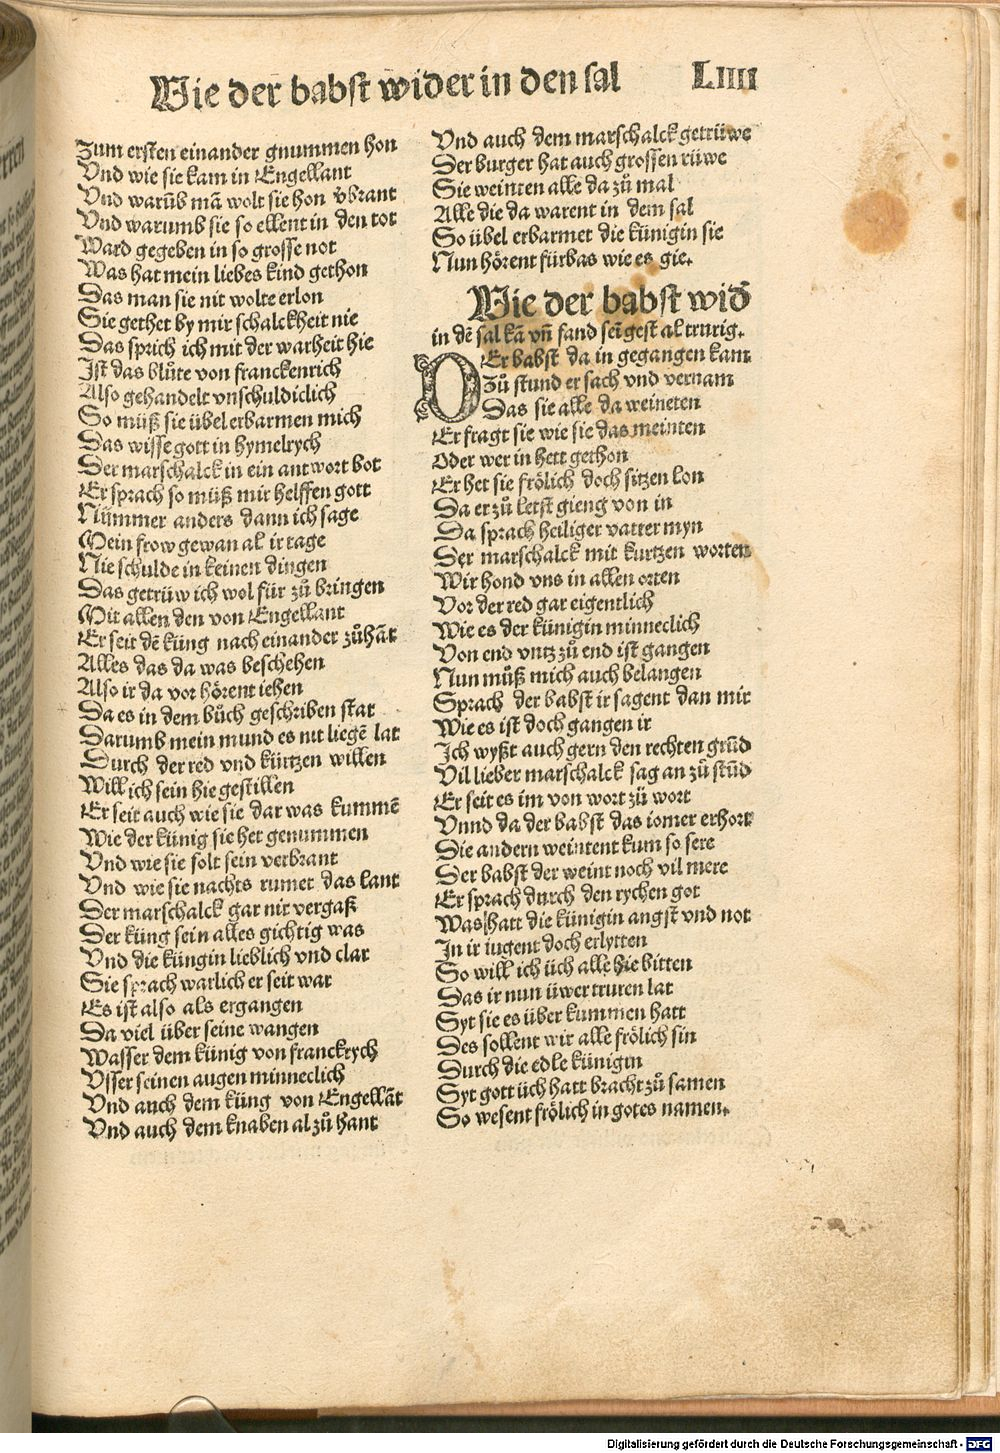 Wie der babst wider in den sal LIIII
Zum ersten einander gnummen hon
Vnd wie sie kam in Engellant
Vnd warūb mā wolt sie hon v̄brant
Vnd warumb sie so ellent in den tot
Ward gegeben in so grosse not
Was hat mein liebes kind gethon
Das man sie nit wolte erlon
Sie gethet by mir schalckheit nie
Das sprich ich mit der warheit hie
Ist das blůte von franckenrich
Also gehandelt vnschuldiclich
So müß sie übel erbarmen mich
Das wisse gott in hymelrych
Der marschalck in ein antwort bot
Er sprach so müß mir helffen gott
Nümmer anders dann ich sage
Mein frow gewan al ir tage
Nie schulde in keinen dingen
Das getrüw ich wol für zů bringen
Mit allen den von Engellant
Er seit dē küng nach einander zůhāt
Alles das da was beschehen
Also ir da vor hörent iehen
Da es in dem bůch geschriben stat
Darumb mein mund es nit liegē lat
Durch der red vnd kürtzen willen
Will ich sein hie gestillen
Er seit auch wie sie dar was kummē
Wie der künig sie het genummen
Vnd wie sie solt sein verbrant
Vnd wie sie nachts rumet das lant
Der marschalck gar nit vergaß
Der küng sein alles gichtig was
Vnd die küngin lieblich vnd clar
Sie sprach warlich er seit war
Es ist also als ergangen
Da viel über seine wangen
Wasser dem künig von franckrych
Vsser seinen augen minneclich
Vnd auch dem küng von Engellāt
Vnd auch dem knaben al zů hant
Vnd auch dem marschalck getrüwe
Der burger hat auch grossen rüwe
Sie weinten alle da zů mal
Alle die da warent in dem sal
So übel erbarmet die künigin sie
Nun hörent fürbas wie es gie.
Wie der babst wid̄
in dē sal kā vn̄ fand sei gest al trurig.
DEr babst da in gegangen kam
Zů stund er sach vnd vernam
Das sie alle da weineten
Er fragt sie wie sie das meinten
Oder wer in hett gethon
Er het sie frölich doch sitzen lon
Da er zů letst gieng von in
Da sprach heiliger vatter myn
Der marschalck mit kurtzen worten
Wir hond vns in allen orten
Vor der red gar eigentlich
Wie es der künigin minneclich
Von end vntz zů end ist gangen
Nun můß mich auch belangen
Sprach der babst ir sagent dan mir
Wie es ist doch gangen ir
Ich wyßt auch gern den rechten grūd
Vil lieber marschalck sag an zů stūd
Er seit es im von wort zů wort
Vnnd da der babst das iomer erhort
Die andern weintent kum so sere
Der babst der weint noch vil mere
Er sprach durch den rychen got
Was hatt die künigin angst vnd not
In ir iugent doch erlytten
So will ich üch alle hie bitten
Das ir nun üwer truren lat
Syt sie es über kummen hatt
Des sollent wir alle frölich sin
Durch die edle künigin
Syt gott üch hatt bracht zů samen
So wesent frölich in gotes namen.
Digitalisierung gefördert durch die Deutsche Forschungsgemeinschaft - DFG